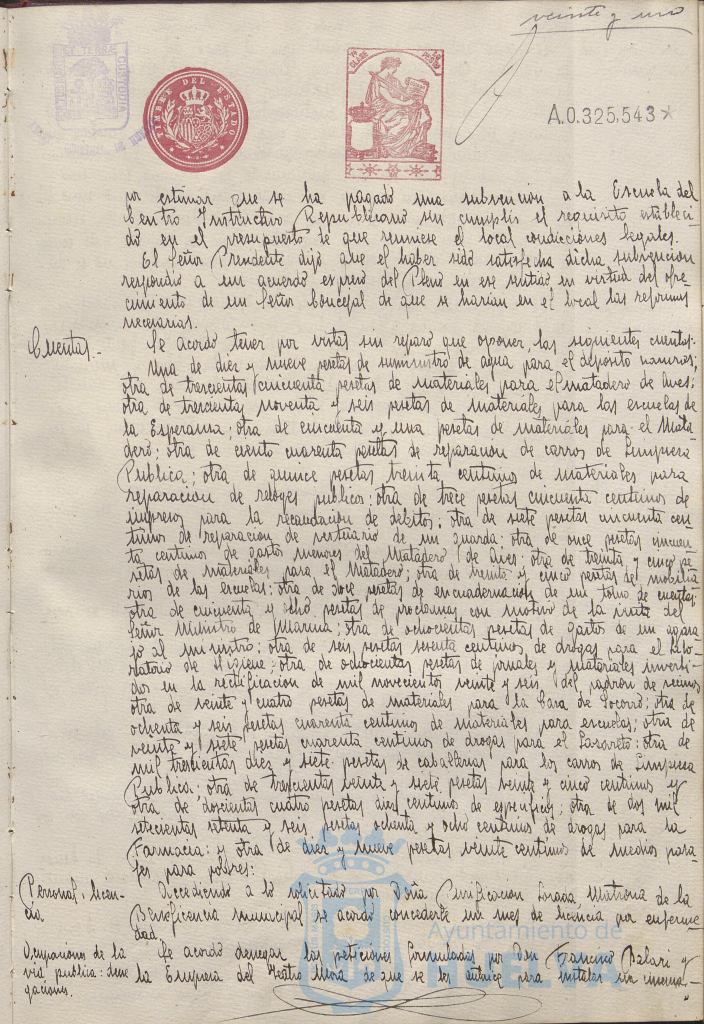 veinte y uno
TIMBRE DEL ESTADO
A.0.325.543
por estimar que se ha pagado una subvencion a la Escuela del
Centro Instructivo Republicano sin cumplir el requisito estableci-
do en el presupuesto de que reuniese el local condiciones legales.
El Señor Presidente dijo que el haber sido satisfecha dicha subvencion
respondio a un acuerdo expreso del Pleno en ese sentido en virtud del ofre-
cimiento de un Señor Concejal de que se harian en el local las reformas
necesarias.
Cuentas.-
Se acordo tener por vistas sin reparo que oponer, las siguientes cuentas:
Una de diez y nueve pesetas de suministro de agua para el deposito
otra de trescientas cincuenta pesetas de materiales para el matadero de aves;
otra de trescientas noventa y seis pesetas de materiales para las escuelas de
la Esperanza; otra de cincuenta y una pesetas de materiales para el Mata-
dero; otra de ciento cuarenta pesetas de reparacion de carros de Limpieza
Publica; otra de quince pesetas treinta centimos de materiales para
reparacion de relojes publicos; otra de trece pesetas cincuenta centimos de
impresos para la recaudacion de debitos; otra de siete pesetas cincuenta cen-
timos de reparacion de vestuario de un guarda; otra de once pesetas cincuen-
ta centimos de gastos menores del Matadero de Aves; otra de treinta y cinco pe-
setas de materiales para el Matadero; otra de treinta y cinco pesetas de mobilia-
rios de las escuelas; otra de doce pesetas de encuadernacion de un tomo de cuentas;
otra de cincuenta y ocho pesetas de proclamas con motivo de la visita del
Señor Ministro de Marina; otra de ochocientas pesetas de gastos de un agasa-
jo al ministro; otra de seis pesetas sesenta centimos de drogas para el Labo-
ratorio de Higiene; otra de ochocientas pesetas de jornales y materiales inverti-
dos en la rectificacion de mil novecientos veinte y seis del padron de vecinos
otra de veinte y cuatro pesetas de materiales para la Casa de Socorro; otra de
ochenta y seis pesetas cuarenta centimos de materiales para escuelas; otra de
veinte y siete pesetas cuarenta centimos de drogas para el Lazareto; otra de
mil trescientas diez y siete pesetas de caballerias para los carros de Limpieza
Publica; otra de trescientas veinte y siete pesetas veinte y cinco centimos y
otra de doscientas cuatro pesetas diez centimos de especificos; otra de dos mil
setecientas setenta y seis pesetas ochenta y ocho centimos de drogas para la
Farmacia: y otra de diez y nueve pesetas veinte centimos de medios pasa-
jes para pobres:
Personal: licen-
cia.
Accediendo a lo solicitado por Doña Purificacion Losada, Matrona de la
Beneficencia municipal se acordo concederle un mes de licencia por enferme-
dad.
Ocupaciones de la
via publica: dene-
gaciones.
Se acordo denegar las peticiones formuladas por Don Francisco Palari y
la Empresa del Teatro Mora de que se les autorice para instalar un cinema-
Ayuntamiento de
HUELVA